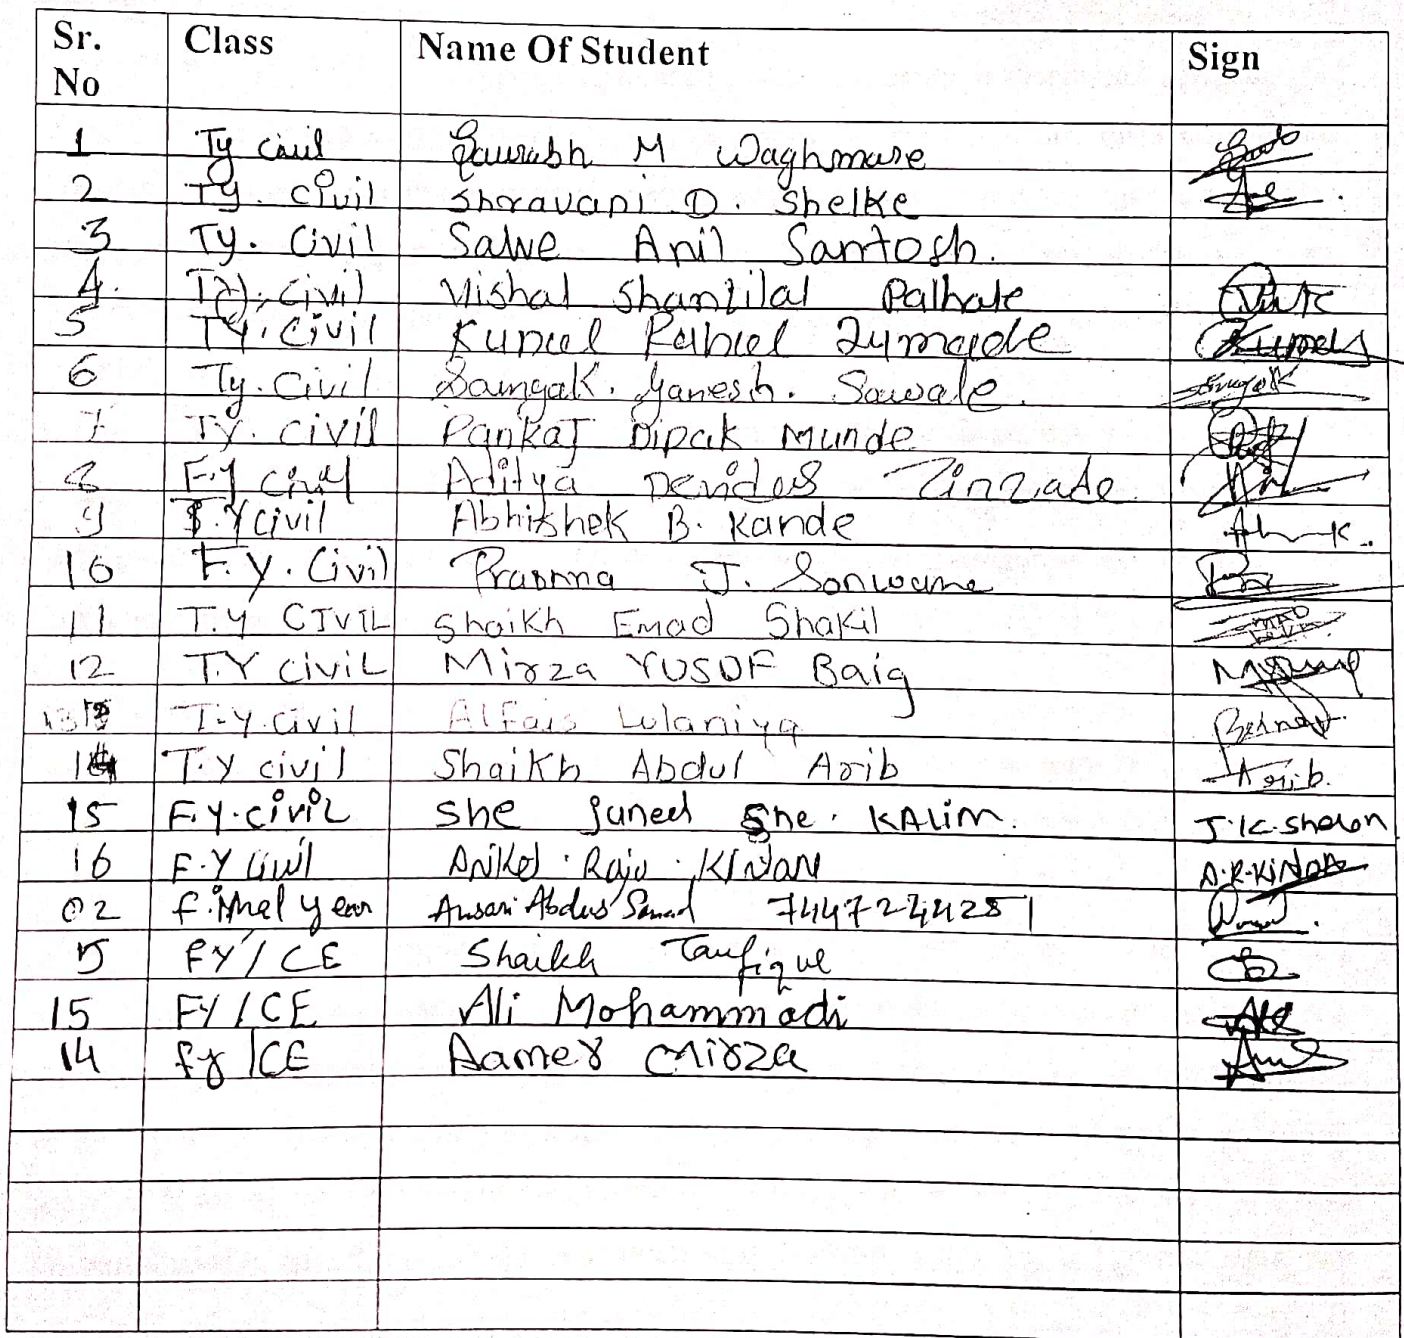 Sr. No Class Name Of Student Sign
1 Ty Civil Saurabh M Waghmare
2 Ty. Civil Shravani D. Shelke
3 Ty. Civil Salve Anil Santosh.
4. Ty. Civil Vishal Shantilal Palhate
5 Ty. Civil Kunal Rahul Zumade
6 Ty. Civil Samyak. Ganesh. Sawale.
7 TY. Civil Pankaj Dipak Munde
8 F.Y Civil Aditya Devidas Zinzade
9 Y Civil Abhishek B. Kande Abh K.
10 F.Y. Civil J. Sonwane
11 T.Y CIVIL Shaikh Emad Shakil
12 T.Y CiviL Mirza YUSUF Baig
13 T.Y. Civil Alfais Lulaniya
14 T.Y civil Shaikh Abdul Arib Arib.
15 F.Y. CiviL She Juned She. KALIM. J.K.
16 F.Y Civil Aniket. Raju. A.R.
02 year Ansari Abdus Samad 7447244281
5 FY/CE Shaikh Taufique
15 FY/CE Ali Mohammadi
14 fy/CE Aamer Mirza